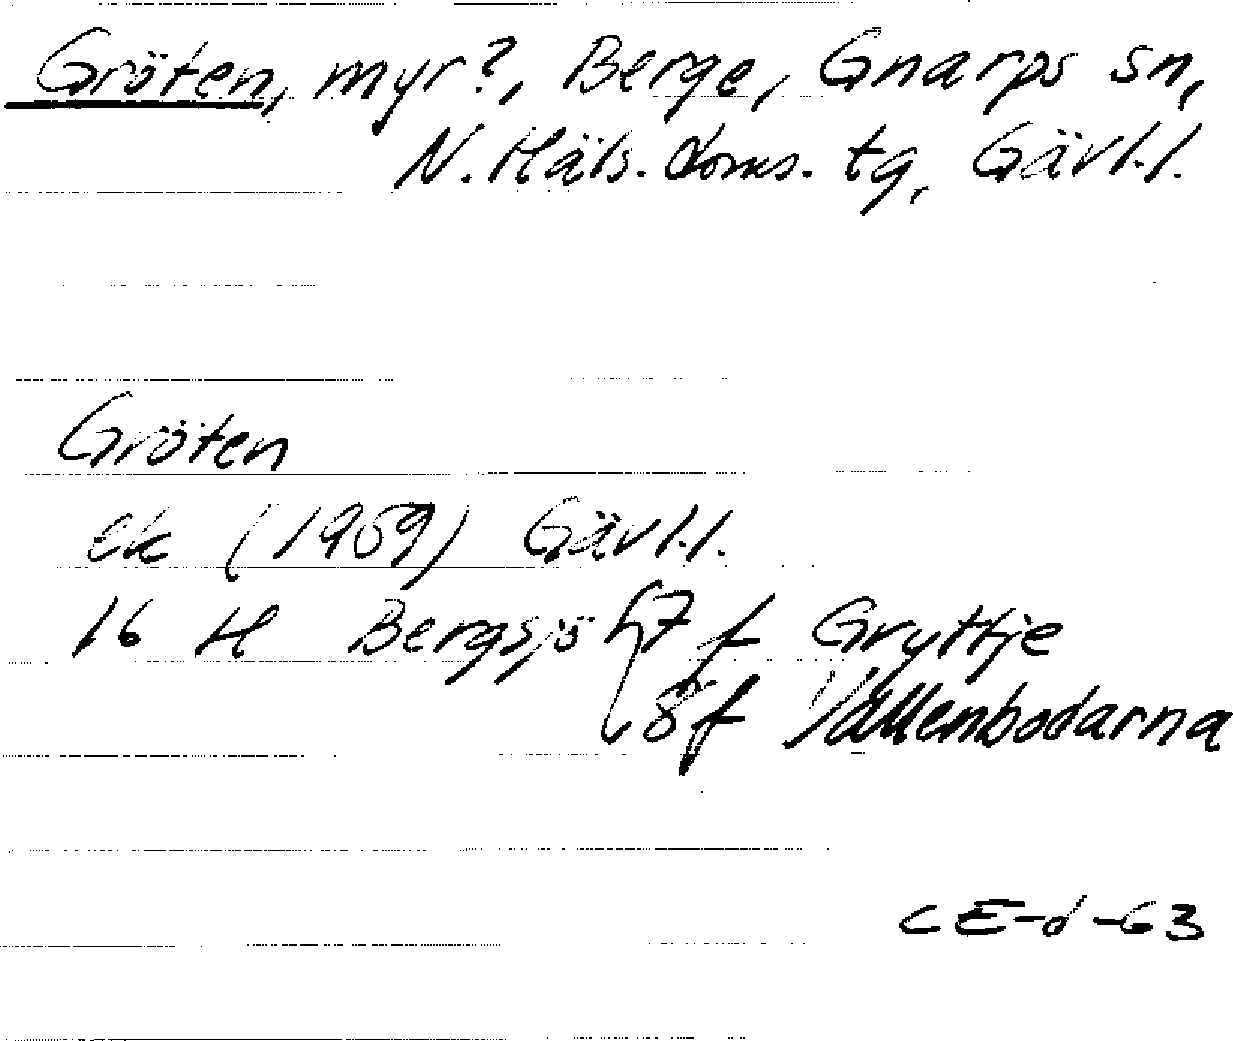 Gröten, myr?, Berge, Gnarps sn,
N. Häls. doms. tg, Gävl.l.
Gröten
ek (1969) Gävl.l.
16 H Bergsjö 7 f Gryttje
8 f Vallenbodarna
CE-d-63